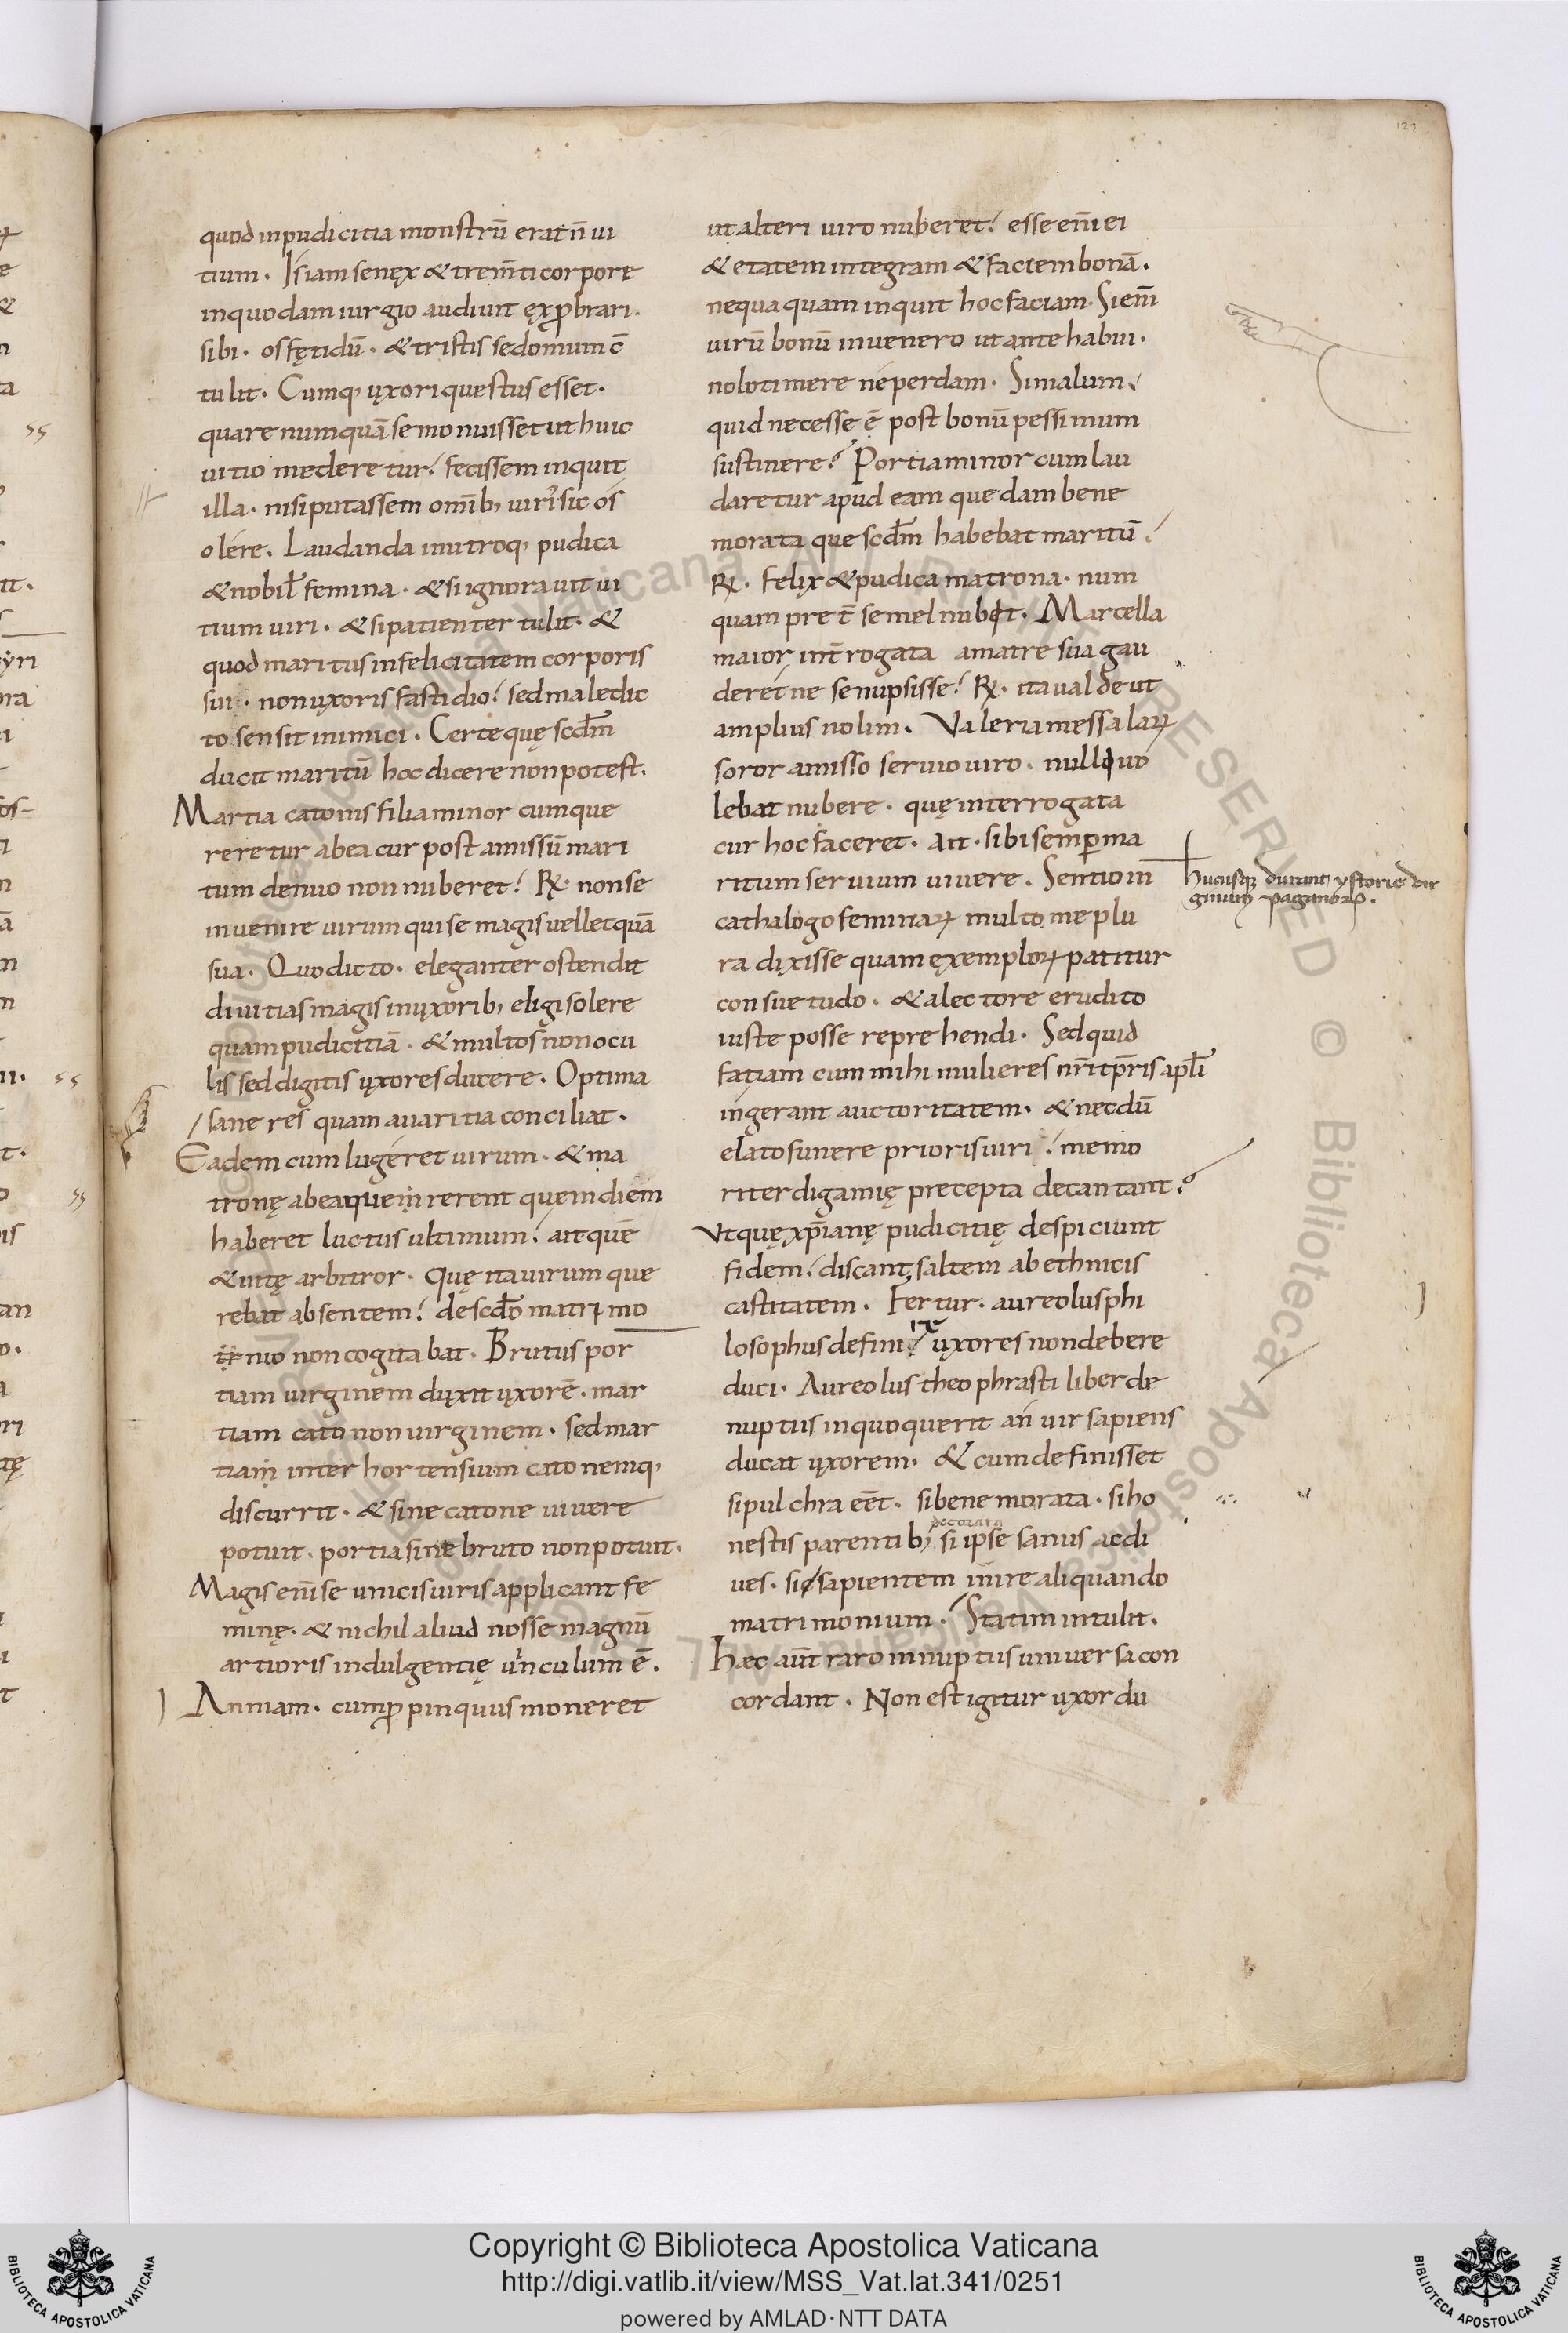 127
quod inpudicitia monstrū erat n̄ ui
tium. Is iam senęx & trem̄ti corpore
in quodam iurgio audiuit ęxꝓbrari.
sibi. os fętidū. & tristis se domum c̄
tulit. Cumq, ųxori questus esset.
quare numquā se monuisset ut huic
uitio mederetur? fecissem inquit
illa. nisi putassem omīb, uiris sic os
olere. Laudanda in utroq, pudica
& nobil̄ femina. & si ignorauit ui
tium uiri. & si patienter tulit. &
quod maritus infelicitatem corporis
sui. non ųxoris fastidio? sed maledic
to sensit inimici. Certe quę scd̄m
ducit maritū hoc dicere non potest.
Martia catonis filia minor cum que
reretur ab ea cur post amissū mari
tum denuo non nuberet? R̸. non se
inuenire uirum qui se magis uellet quā
sua. Quo dicto. eleganter ostendit
diuitias magis in ųxorib, eligi solere
quam pudicitiā. & multos non ocu
lis sed digitis ųxores ducere. Optima
sane res quam auaritia conciliat.
Eadem cum lugeret uirum. & ma
tronę ab ea quererent quem diem
haberet luctus ultimum? ait quē
& uitę arbitror. Quę ita uirum que
rebat absentem? de scd̄o matrimo
nio non cogitabat. Brutus por
tiam uirginem dųxit ųxorē. mar
tiam cato non uirginem. sed mar
tiam inter hortensium catonemq,
discurrit. & sine catone uiuere
potuit. portia sine bruto non potuit.
Magis enī se unicis uiris applicant fe
minę. & nichil aliud nosse magnū
artioris indulgentię uinculum ē.
Anniam. cum ꝓpinquus moneret
ut alteri uiro nuberet? esse enī ei
& etatem integram & faciem bonā.
nequaquam inquit hoc faciam. Si enī
uirū bonū inuenero ut ante habui.
nolo timere ne perdam. Si malum?
quid necesse ē post bonū pessimum
sustinere? Portia minor cum lau
daretur apud eam quedam bene
morata que scd̄m habebat maritū?
R̸. felix & pudica matrona. num
quam pret̄ semel nubit. Marcella
maior int̄rogata a matre sua gau
deret ne se nupsisse? R̸. ita ualde ut
amplius nolim. Valeria messalaꝝ
soror amisso seruio uiro. nullo uo
lebat nubere. quę interrogata
cur hoc faceret. ait. sibi semꝑ ma
ritum seruium uiuere. Sentio in
cathalogo feminaꝝ multo me plu
ra dixisse quam ęxemploꝝ patitur
consuetudo. & a lectore erudito
iuste posse reprehendi. Sed quid
faciam cum mihi mulieres nr̄i tp̄ris apl̄i
ingerant auctoritatem. & necdū
elato funere prioris uiri? memo
riter digamię precepta decantant?
Ut quę xp̄ianę pudicitię despiciunt
fidem? discant saltem ab ethnicis
castitatem. Fertur. aureolus phi
losophus definit ųxores non debere
duci. Aureolus theophrasti liber de
nuptiis in quo querit an uir sapiens
ducat ųxorem. & cum definisset
si pulchra eēt. si bene morata. si ho
nestis parentib; si ipse sanus ac di
ues. sic sapientem inire aliquando
matrimonium. Statim intulit.
Hæc aūt raro in nuptiis uniuersa con
cordant. Non est igitur uxor du
hucusq; durant ystorie uir
ginum paganorꝝ.
Copyright © Biblioteca Apostolica Vaticana
http://digi.vatlib.it/view/MSS_Vat.lat.341/0251
powered by AMLAD·NTT DATA
BIBLIOTECA APOSTOLICA VATICANA
BIBLIOTECA APOSTOLICA VATICANA